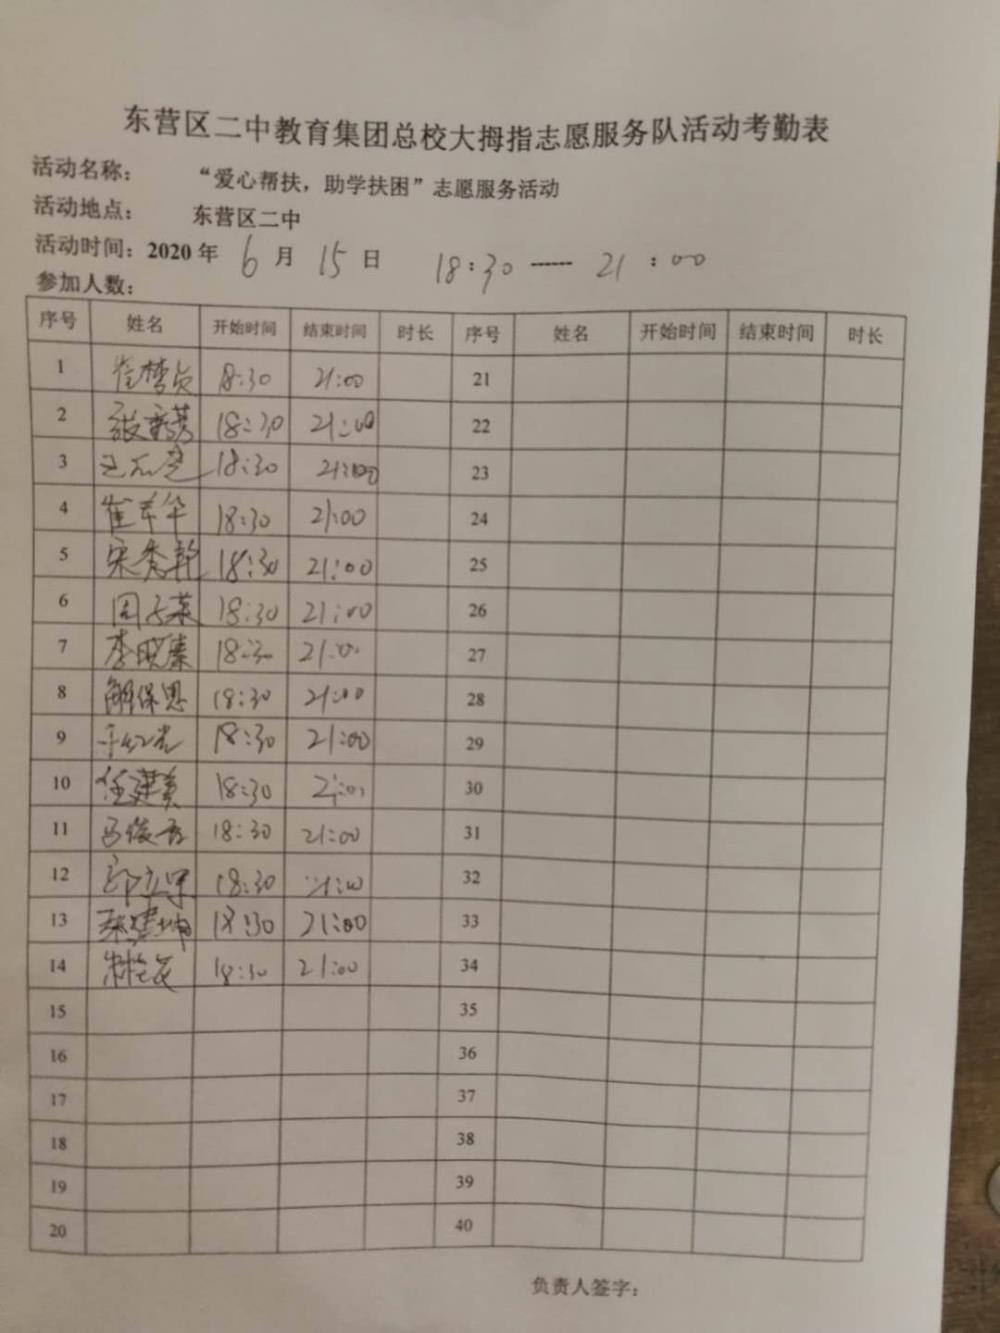 东营区二中教育集团总校大拇指志愿服务队活动考勤表
活动名称： “爱心帮扶，助学扶困”志愿服务活动
活动地点： 东营区二中
活动时间：2020年 6 月 15 日 18:30 ----- 21:00
参加人数：
序号 姓名 开始时间 结束时间 时长 序号 姓名 开始时间 结束时间 时长
1 18:30 21:00 21
2 张 18:30 21:00 22
3 18:30 21:00 23
4 崔 华 18:30 21:00 24
5 宋秀 18:30 21:00 25
6 周 18:30 21:00 26
7 李晓 18:30 21:00 27
8 解保恩 18:30 21:00 28
9 18:30 21:00 29
10 任建美 18:30 21:00 30
11 马俊 18:30 21:00 31
12 18:30 21:00 32
13 建坤 18:30 21:00 33
14 18:30 21:00 34
15 35
16 36
17 37
18 38
19 39
20 40
负责人签字：